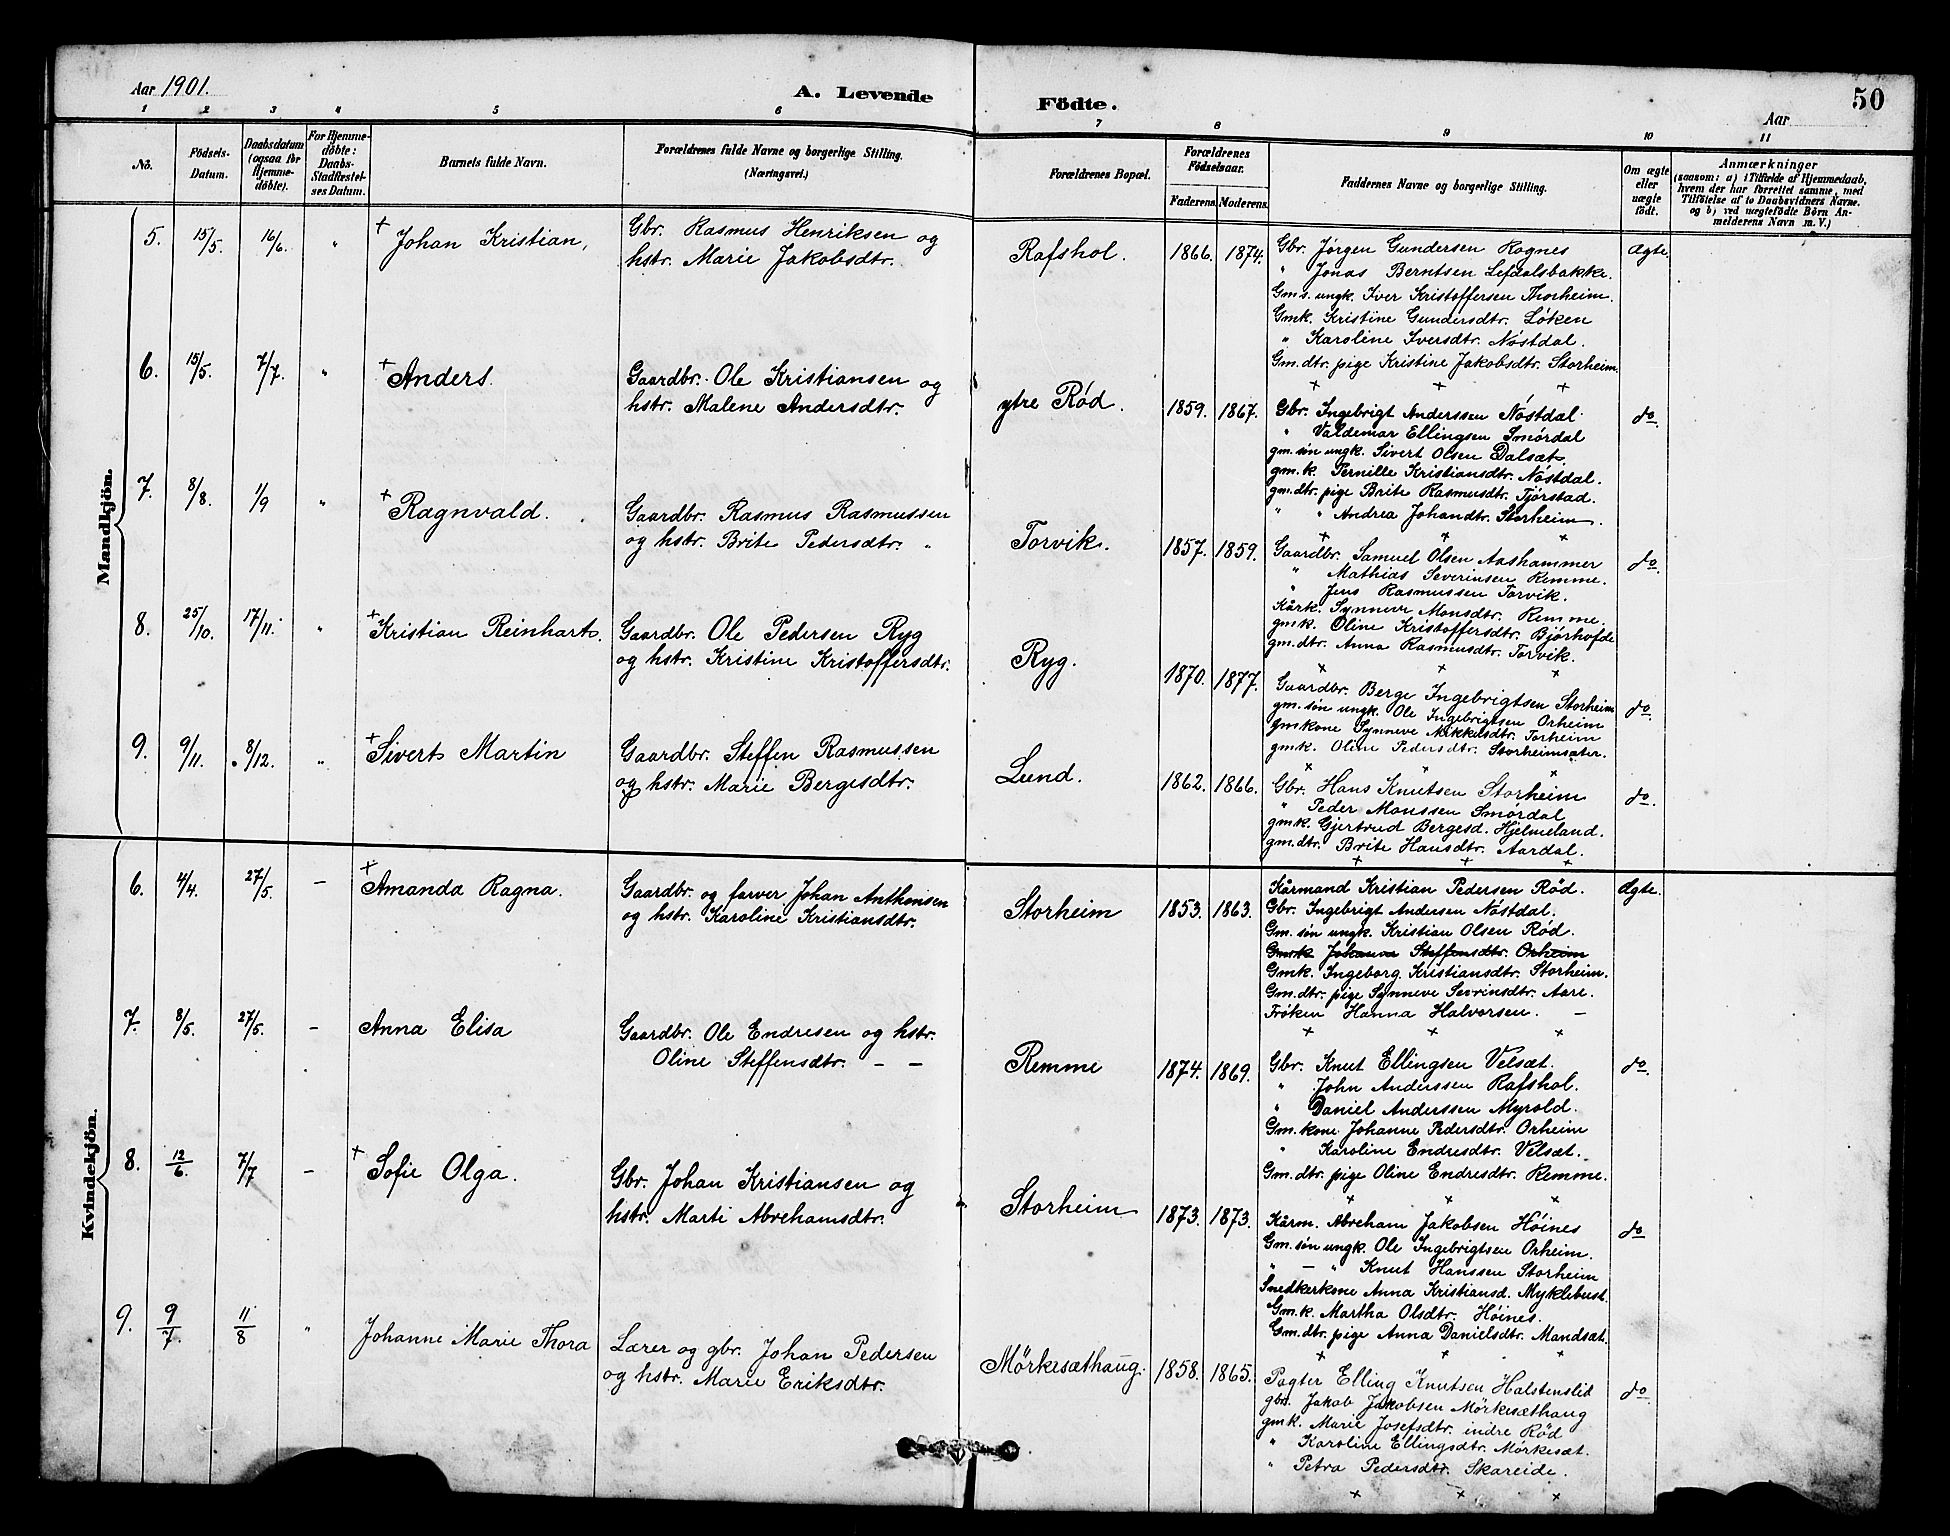 Aar 1901.
A. Levende Födte.
Aar
50
1 2 3 4 5 6 7 8 9 10 11
No.
Födsels-Datum.
Daabsdatum (ogsaa for Hjemmedöbte).
For Hjemmedöbte: Daabs-Stadfæstelses Datum.
Barnets fulde Navn.
Forældrenes fulde Navne og borgerlige Stilling.
(Næringsvei.)
Forældrenes Bopæl.
Forældrenes Födselsaar.
Faderens. Moderens.
Faddernes Navne og borgerlige Stilling.
Om ægte eller uægte födt.
Anmærkninger
(saasom: a) i Tilfælde af Hjemmedaab,
hvem der har forrettet samme, med
Tilföielse af to Daabsvidners Navne.
og b) ved uægtefödte Börn An-
melderens Navn m. V.)
Mandkjön.
5. 15/5. 16/6. " + Johan Kristian,
Gbr. Rasmus Henriksen og
hstr. Marie Jakobsdtr.
Rafshol. 1866. 1874.
Gbr. Jørgen Gundersen Ragnes
" Jonas Berntsen Lefdalsbakke.
Gms. ungk. Iver Kristoffersen Thorheim.
Gmk. Kristine Gundersdtr. Løken
" Karoline Iversdtr. Nøstdal.
Gm.dtr. pige Kristine Jakobsdtr. Storheim.
Ægte.
+ + +
6. 15/5. 7/7. " + Anders.
Gaardbr. Ole Kristiansen og
hstr. Malene Andersdtr.
ytre Rød. 1859. 1867.
Gbr. Ingebrigt Anderssen Nøstdal
" Valdemar Ellingsen Smørdal
gm. søn ungk. Sivert Olsen Dalsæt.
gm.k. Pernille Kristiansdtr. Nøstdal.
gm.dtr. pige Brite Rasmusdtr. Tjørstad.
" " Andrea Johandtr. Storheim.
do.
+ + +
7. 8/8. 1/9 " + Ragnvald.
Gaardbr. Rasmus Rasmussen
og hstr. Brite Pedersdtr. "
Torvik. 1857. 1859.
Gaardbr. Samuel Olsen Aashammer
" Mathias Severinsen Remme.
" Jens Rasmussen Torvik.
Kårk. Synneve Monsdtr. Remme.
gmk. Oline Kristoffersdtr. Bjørhofde
gm.dtr. Anna Rasmusdtr. Torvik.
do.
+ + +
8. 25/10. 17/11. " + Kristian Reinhart.
Gaardbr. Ole Pedersen Ryg
og hstr. Kristine Kristoffersdtr.
Ryg. 1870. 1877.
Gaardbr. Berge Ingebrigtsen Storheim
gm. søn ungk. Ole Ingebrigtsen Orheim
gmkone Synneve Mikkelsdtr. Torheim
gmk. Oline Pedersdtr. Storheimsæter.
do.
+ + +
9. 9/11. 8/12. " + Sivert Martin
Gaardbr. Steffen Rasmussen
og hstr. Marie Bergesdtr.
Lund. 1862. 1866.
Gbr. Hans Knutsen Storheim
" Peder Monssen Smørdal
gmk. Gjertrud Bergesd. Hjelmeland.
gm.dtr. Brite Hansdtr. Aardal.
do.
+ + +
Kvindekjön.
6. 4/4. 27/5. – + Amanda Ragna.
Gaardbr. og farver Johan Anthonsen
og hstr. Karoline Kristiansdtr.
Storheim 1853. 1863.
Kårmand Kristian Pedersen Rød.
Gbr. Ingebrigt Andersen Nøstdal.
Gm. søn ungk. Kristian Olsen Rød.
Gmk Johanne Steffensdtr. Orheim
Gmk. Ingeborg Kristiansdtr. Storheim.
Gm.dtr. pige Synneve Sevrinsdtr. Aare.
Frøken Hanna Halvorsen. –
Ægte.
+ + +
7. 8/5. 27/5. – Anna Elisa
Gaardbr. Ole Endresen og hstr.
Oline Steffensdtr. – –
Remme 1874. 1869.
Gbr. Knut Ellingsen Velsæt.
" John Anderssen Rafshol.
" Daniel Anderssen Myrold.
Gm. kone Johanne Pedersdtr. Orheim
" Karoline Endresdtr. Velsæt.
Gm.dtr. pige Oline Endresdtr. Remme.
do.
+ + +
8. 12/6. 7/7 – + Sofie Olga.
Gbr. Johan Kristiansen og
hstr. Marti Abrehamsdtr.
Storheim 1873. 1873.
Kårm. Abreham Jakobsen Høines
Gm. søn ungk. Ole Ingebrigtsen Orheim.
" – " Knut Hanssen Storheim
Snedkerkone Anna Kristiansd. Myklebust.
Gm.k. Martha Olsdtr. Høines.
Gm.dtr. pige Anna Danielsdtr. Mandsæt.
do
+ + +
9. 9/7. 11/8 " Johanne Marie Thora
Lærer og gbr. Johan Pedersen
og hstr. Marie Eriksdtr.
Mörkesæthaug. 1858. 1865.
Pagter Elling Knutsen Halstenslid
gbr. Jakob Jakobsen Mörkesæthaug
gmk. Marie Josefsdtr. indre Rød
" Karoline Ellingsdtr. Mörkesæt.
" Petra Pedersdtr. Skareide.
do.
+ + +